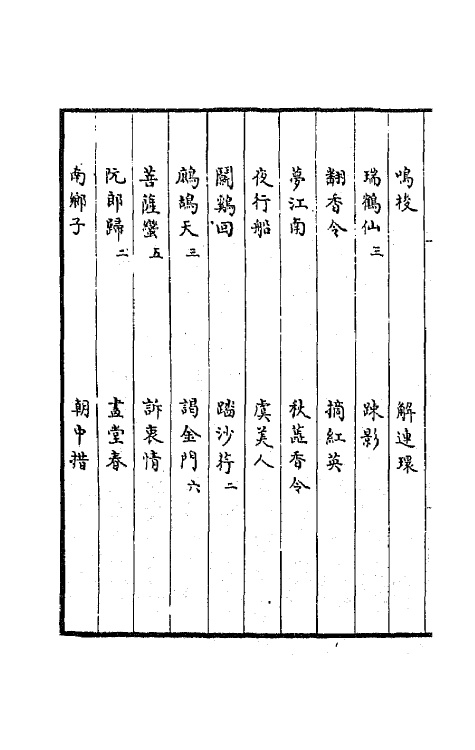 鳴梭　解連環
瑞鶴仙三　疎影
翻香令　摘紅英
夢江南　秋蕊香令
夜行船　虞美人
鬭鷄回　踏沙行二
鷓鴣天三　謁金門六
菩薩蠻五　訴衷情
阮郎歸二　畫堂春
南鄉子　朝中措